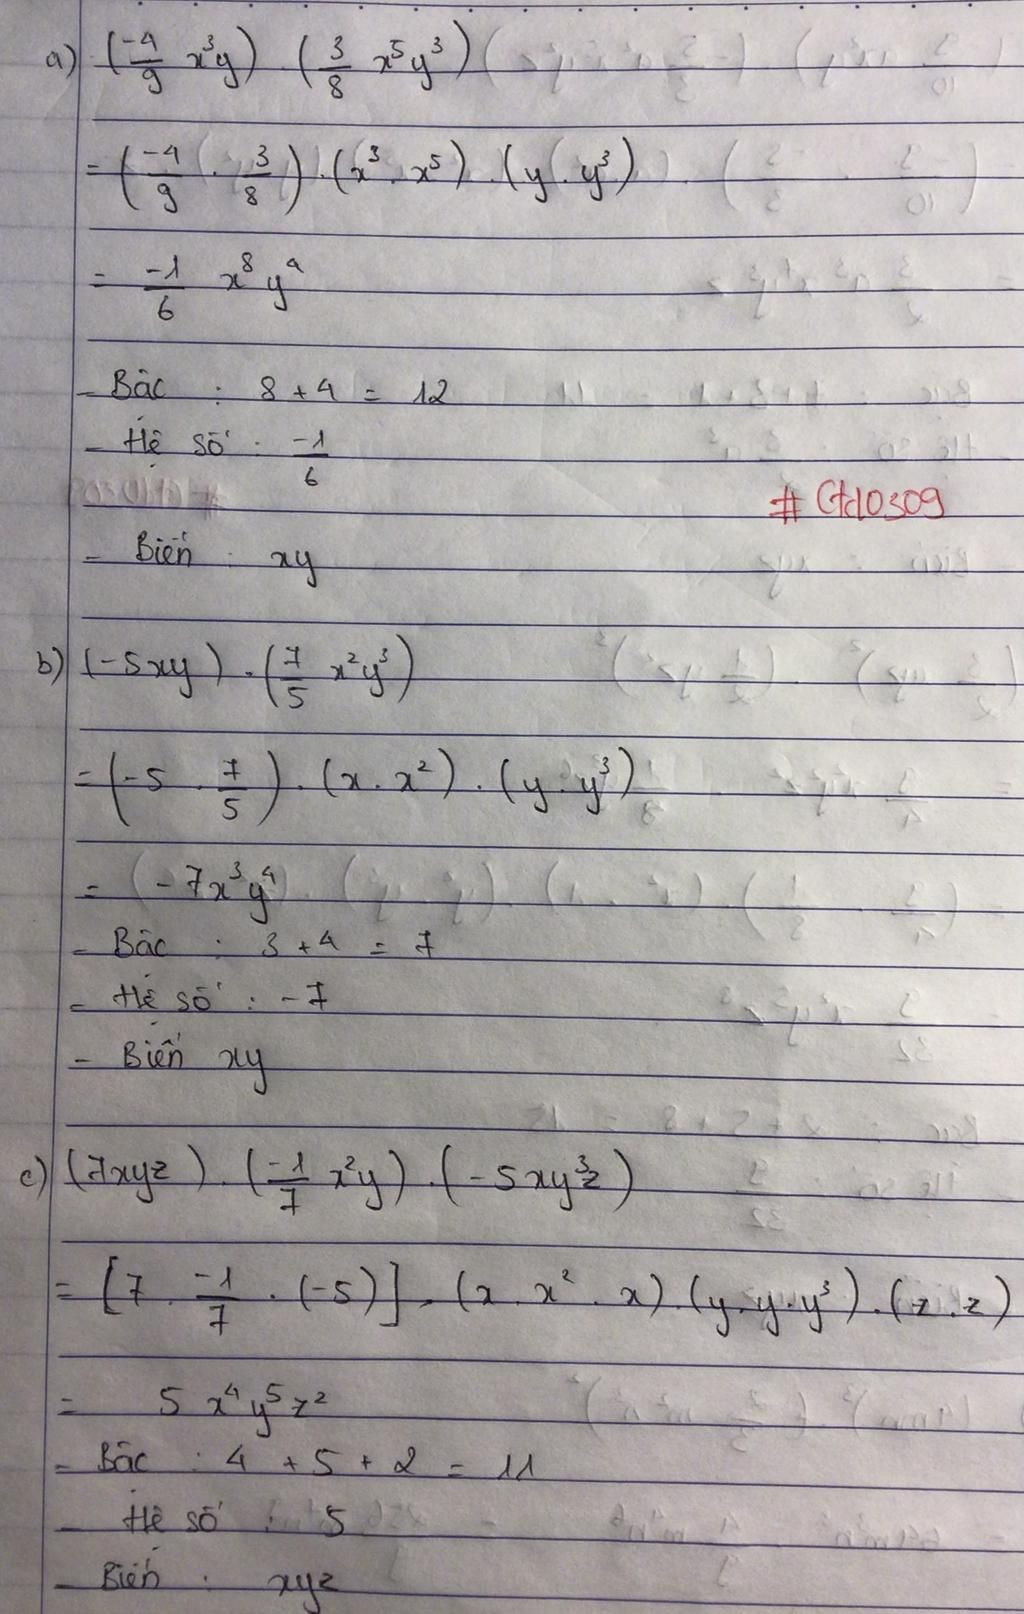 a) (-4/9 x³y) . (3/8 x⁵y³)
= (-4/9 . 3/8) . (x³ . x⁵) . (y . y³)
= -1/6 x⁸y⁴
- Bậc : 8 + 4 = 12
- Hệ số : -1/6
# Gtd0309
- Biến : xy
b) (-5xy) . (7/5 x²y³)
= (-5 . 7/5) . (x . x²) . (y . y³)
= -7x³y⁴
- Bậc : 3 + 4 = 7
- Hệ số : -7
- Biến xy
c) (7xyz) . (-1/7 x²y) . (-5xy³z)
= [7 . -1/7 . (-5)] . (x . x² . x) . (y . y . y³) . (z . z)
= 5 x⁴y⁵z²
- Bậc : 4 + 5 + 2 = 11
- Hệ số : 5
- Biến : xyz